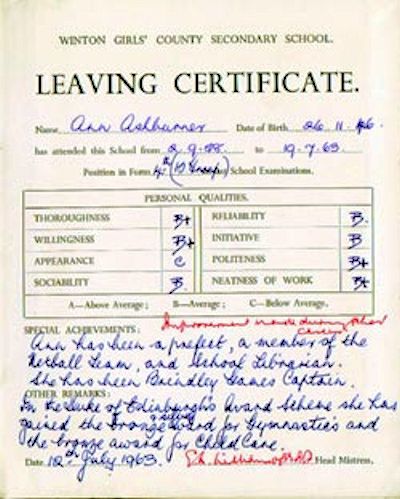 WINTON GIRLS' COUNTY SECONDARY SCHOOL.
LEAVING CERTIFICATE.
Name, Ann Ashburner Date of Birth, 26.11.46.
has attended this School from 2.9.58. to 19.7.63
Position in Form, 4th (B Group) School Examinations.
PERSONAL QUALITIES.
THOROUGHNESS B+ RELIABILITY B.
WILLINGNESS B+ INITIATIVE B
APPEARANCE C POLITENESS B+
SOCIABILITY B. NEATNESS OF WORK B+
A—Above Average; B—Average; C—Below Average.
SPECIAL ACHIEVEMENTS: Improvement made during school career
Ann has been a prefect, a member of the
Netball Team, and School Librarian.
She has been Brindley Games Captain.
OTHER REMARKS:
In the Duke of Edinburgh's Award Scheme she has
gained the bronze & silver award for Gymnastics and
the bronze award for Child Care.
Date, 12th July 1963. Head Mistress.